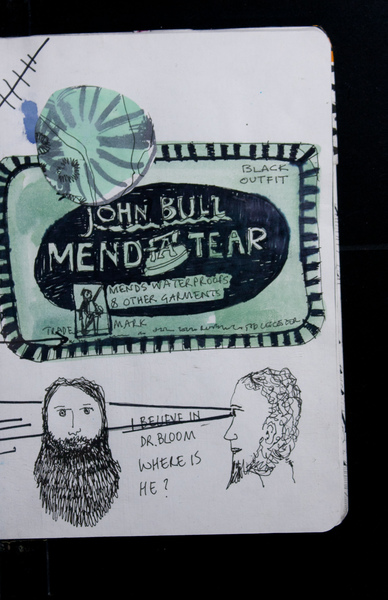 BLACK
OUTFIT
JOHN BULL
MEND "A" TEAR
MENDS WATERPROOFS
& OTHER GARMENTS
TRADE MARK
LTD LEICESTER
I BELIEVE IN
DR. BLOOM
WHERE IS
HE?